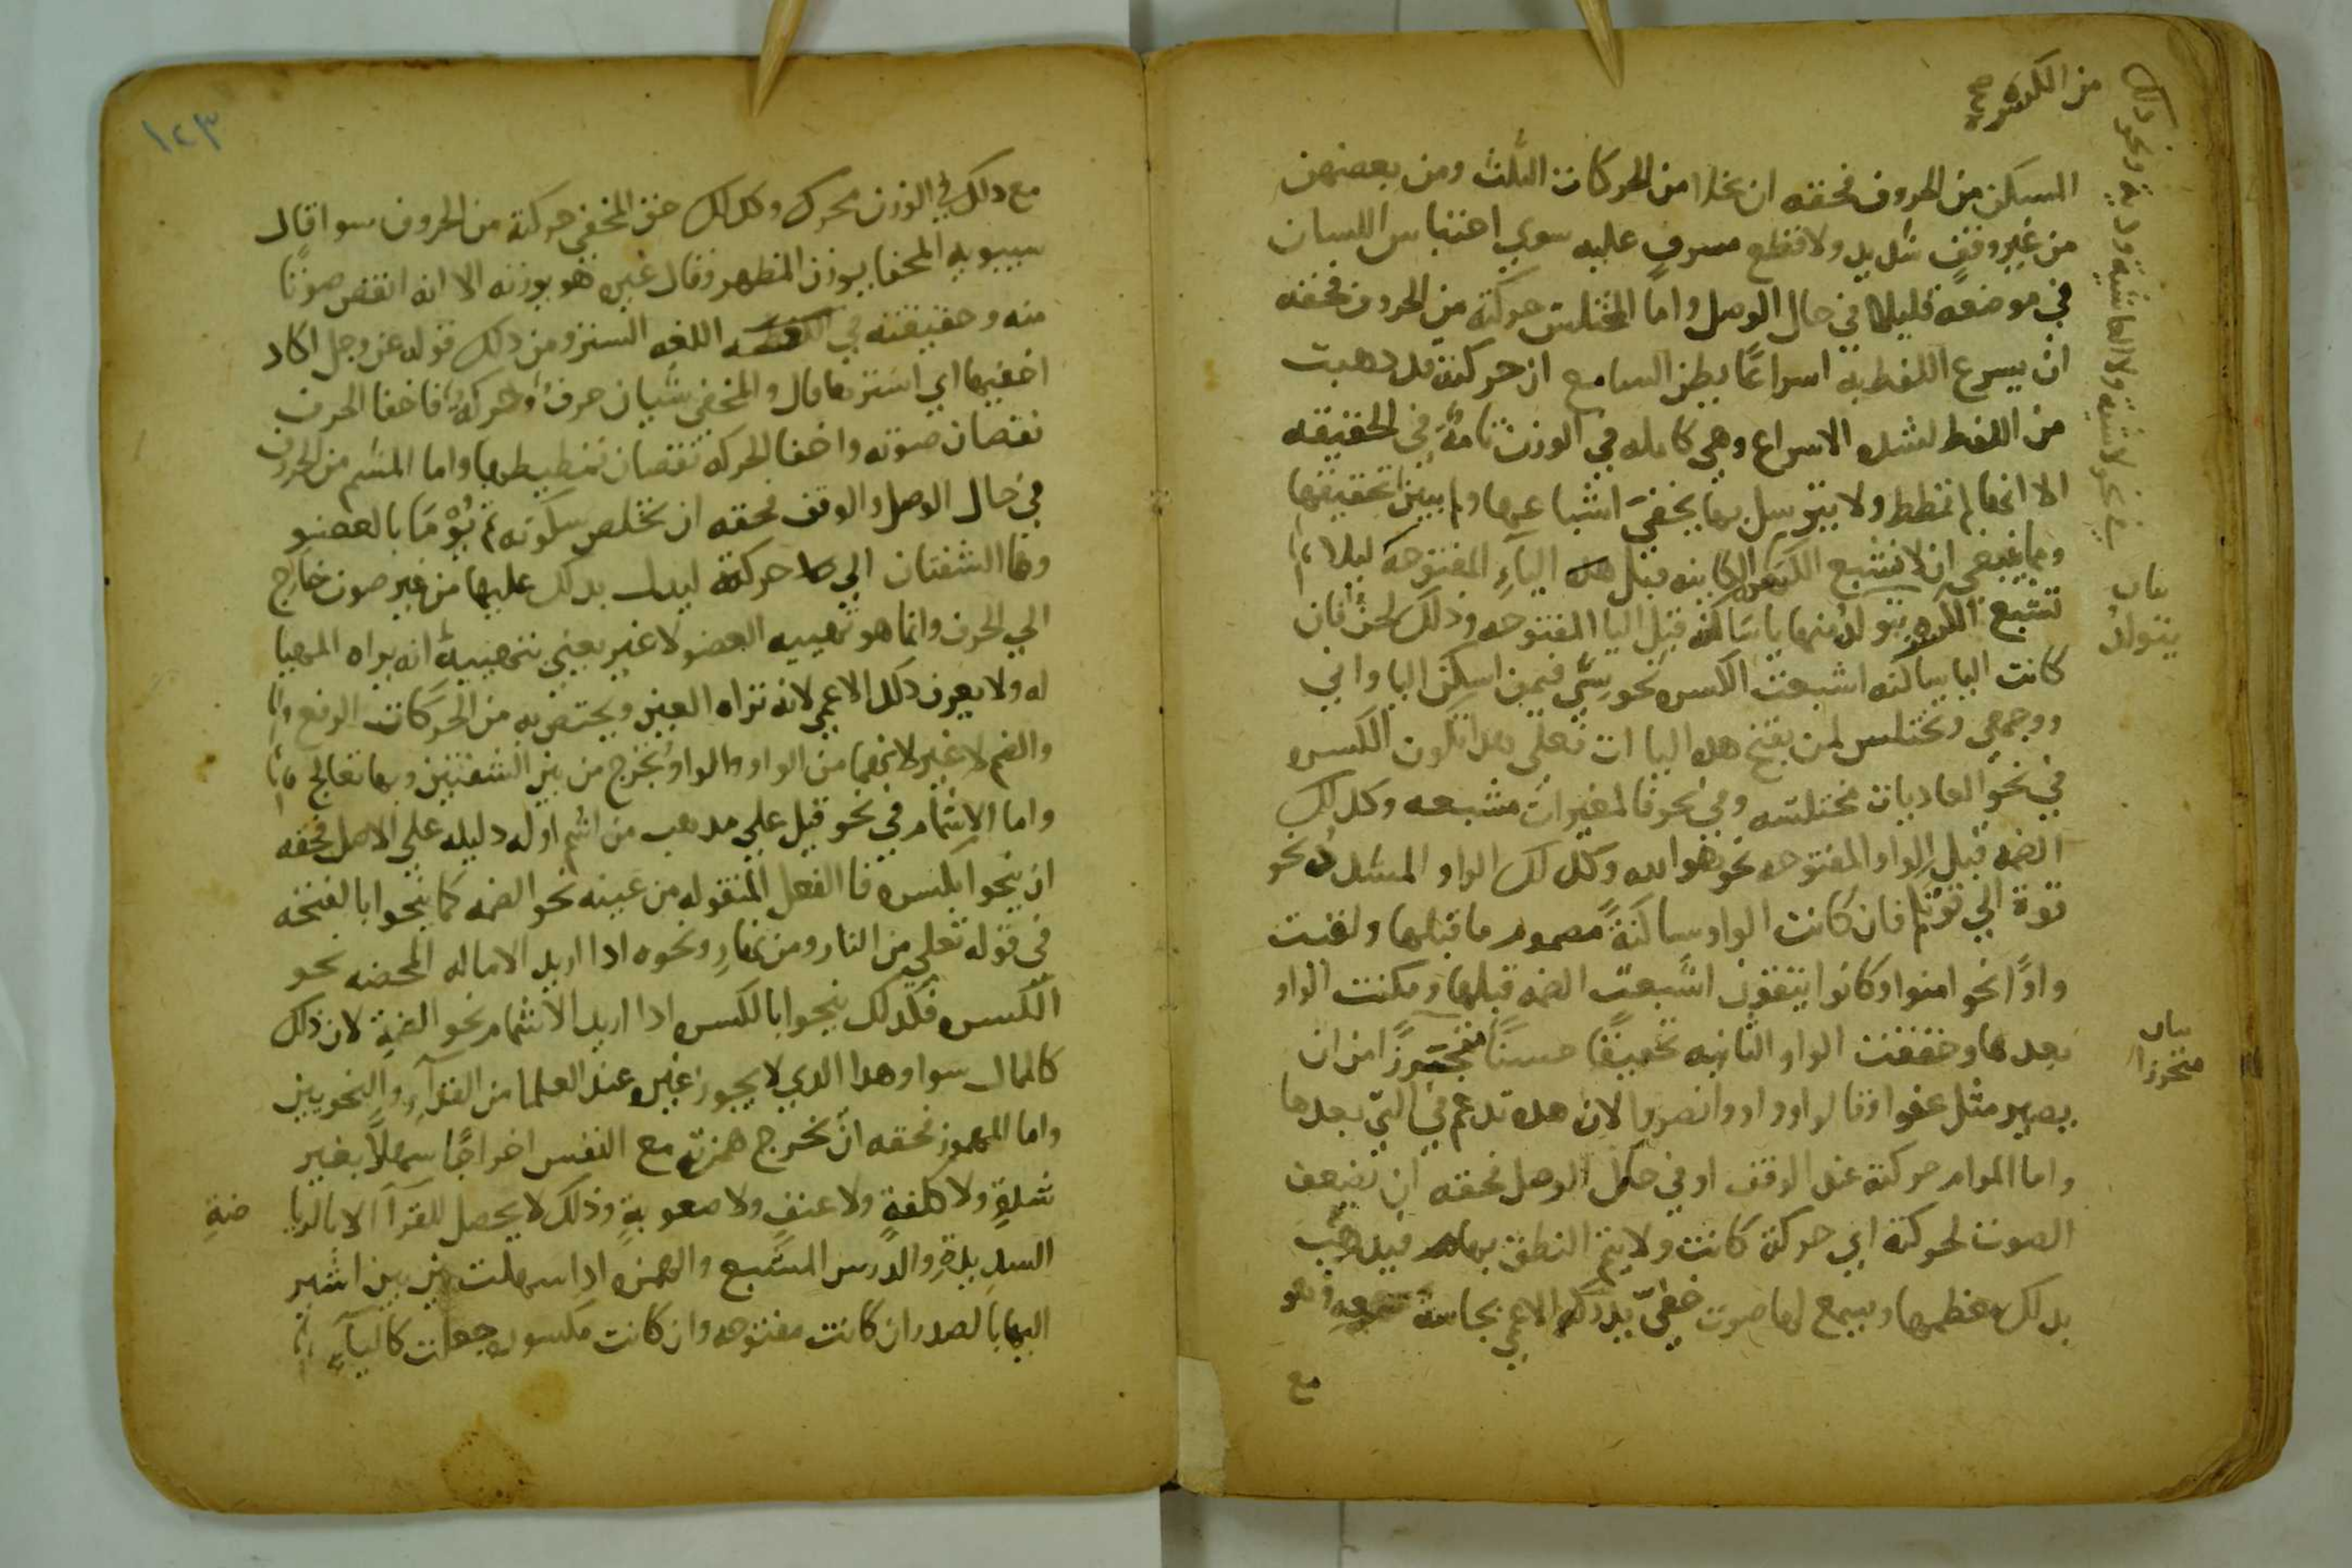 من الكسرة صح
ذلك
ونحو
دية و
لا شية ولا الحاشية
في نحو
المسكن من الحروف فحقه ان يخلا من الحركات الثلث ومن بعضهن
من غير وقف شديد ولا قطع مسرف عليه سوي احتباس اللسان
في موضعه قليلا في حال الوصل واما المختلس حركته من الحروف فحقه
ان يسرع اللفظ به اسراعا يظن السامع ان حركته قد دهبت
من اللفظ لشده الاسراع وهي كامله في الوزن تامة في الحقيقه
الا انها لم تمطط ولا يترسل بها بخفي اشباعها ولم يبين تحقيقها
ومما ينبغي ان لا تشبع الكسر الكاينه قبل هده الياء المفتوحه ليلا
تشبع الكسره يتولد منها يا ساكنه قبل اليا المفتوحه ودلك لحن فان
كانت اليا ساكنه اشبعت الكسره نحو فيمن اسكن اليا وابي
ووجهي وتختلس لمن يفتح هده اليا ات فعلى هدا تكون الكسره
في نحو العاديات مختلسه وفي نحو فالمغيرات مشبعه وكدلك
الضمه قبل الواو المفتوحه نحو هو الله وكدلك الواو المشدد نحو
قوة الي قوتكم فان كانت الواو ساكنة مضموم ما قبلها ولقيت
واوا نحو امنوا وكانوا يتقون اشبعت الضمه قبلها ومكنت الواو
بعدها وخففت الواو الثانيه تخفيفا حسنا متحرزا من ان
يصير مثل عفوا وقالوا و اووا ونصروا لان هده تدغم في التي بعدها
واما المرام حركته عند الوقف او في حال الوصل فحقه ان يضعف
الصوت لحركته اي حركة كانت ولا يتم النطق بها فيدهب
بدلك معظمها ويسمع لها صوت خفي يدركه الاعمي بحاسة سمعه وهو
مع
بيان
يتولد
بيان
متحرزا
١٢٣
مع دلك في الوزن محرك وكدلك حق المخفي حركته من الحروف سوا قال
سيبويه المخفا بوزن المظهر وقال غيره هو بوزنه الا انه انقص صوتا
منه وحقيقته في اللغه الستر ومن دلك قوله عز وجل اكاد
اخفيها اي استرها قال والمخفي شيان حرف وحركة فاخفا الحرف
نقصان صوته واخفا الحركه نقصان تمطيطها واما المشم من الحروف
في حال الوصل والوقف فحقه ان تخلص سكونه ثم يوما بالعضو
وهما الشفتان الي حركته ليدل بدلك عليها من غير صوت خارج
الي الحرف وانما هو تهييه العضو لا غير يعني بتهييه انه يراه المهيا
له ولا يعرف دلك الاعمي لانه تراه العين ويختص به من الحركات الرفع
والضم لا غير لانهما من الواو والواو تخرج من بين الشفتين وبهما تعالج
واما الاشمام في نحو قيل علي مدهب من اشم اوله دليله علي الاصل فحقه
ان ينحوا بكسره فا الفعل المنقوله من عينه نحو الضمه كما ينحوا بالفتحه
في قوله تعلي من النار ومن نهار ونحوه ادا اريد الاماله المحضه نحو
الكسره فكدلك ينحوا بالكسره ادا اريد الاشمام نحو الضمة لان ذلك
كالممال سوا وهدا الدي لا يجوز غيره عند العلما من القرآء والنحويين
واما المهموز فحقه ان تخرج همزته مع النفس اخراجا سهلا بغير
شدة ولا كلفة ولا عنف ولا صعوبة وذلك لا يحصل للقرآ الا بالريا
ضة
السديدة والدرس المشبع والهمزه ادا سهلت بين بين اشير
اليها بالصدر ان كانت مفتوحه وان كانت مكسوره جعلت كالياء